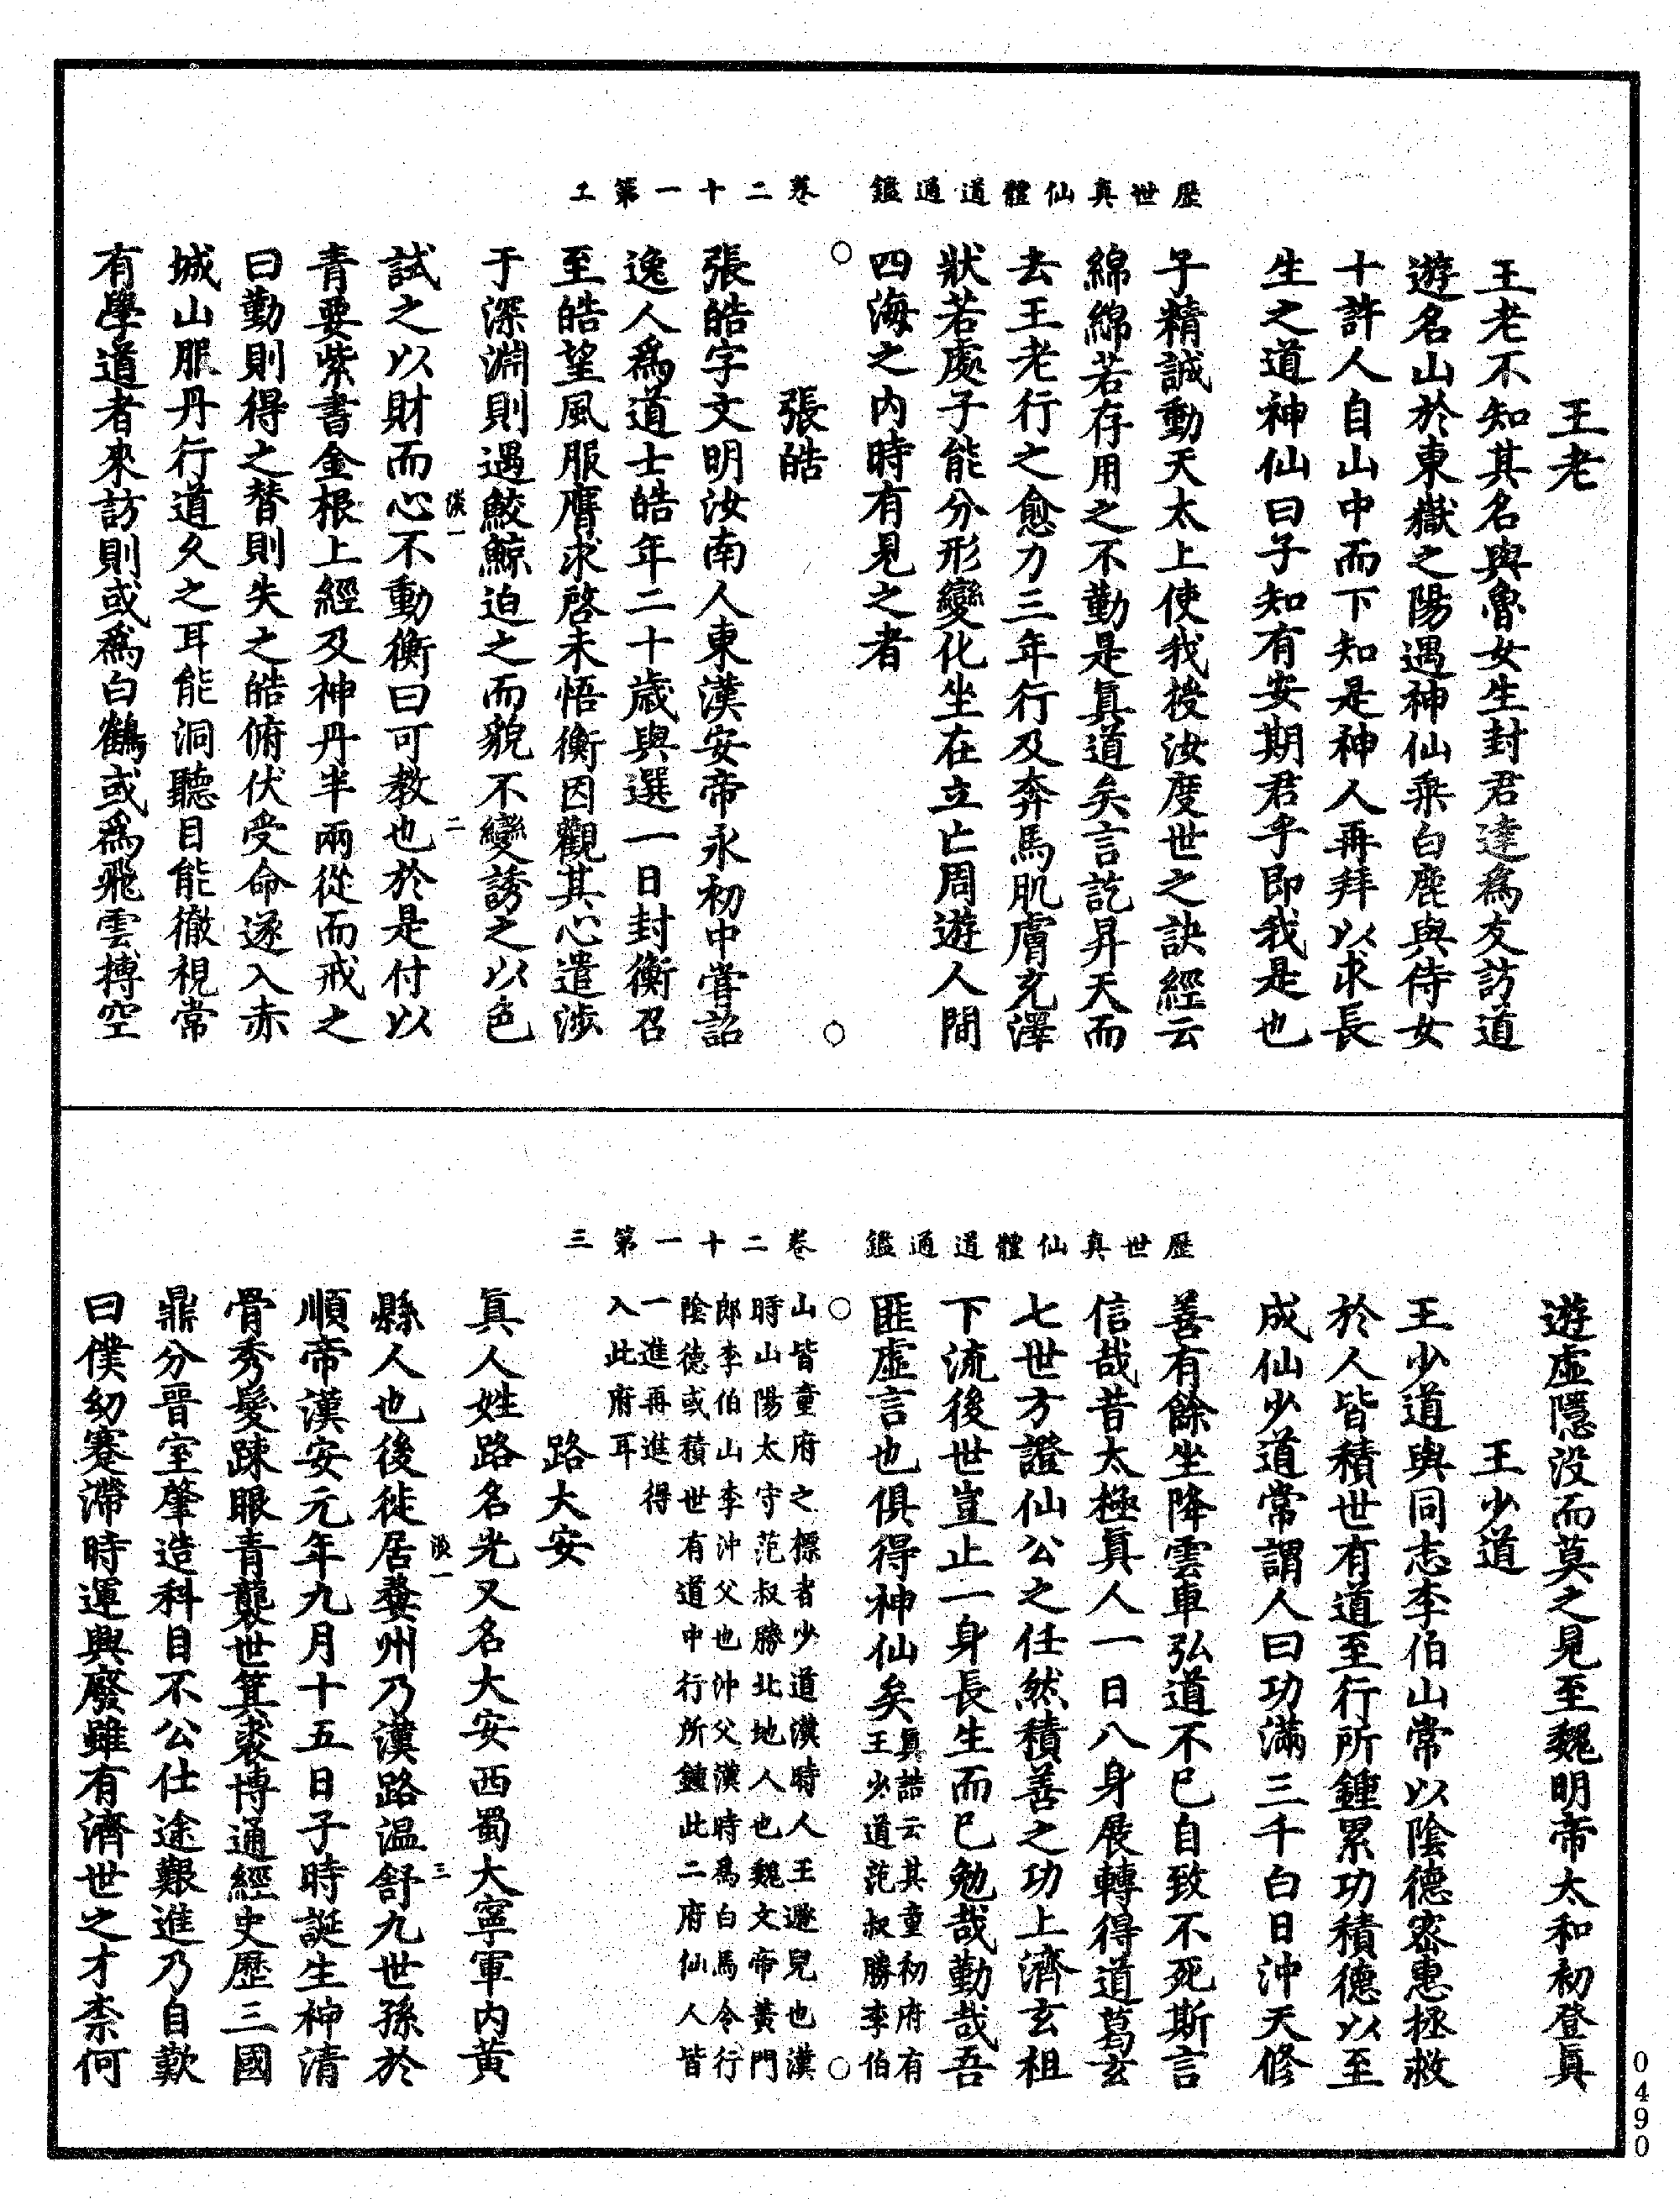 歷世真仙體道通鑑　卷二十一第二
王老
王老不知其名與魯女生封君達為友訪道
遊名山於東嶽之陽遇神仙乘白鹿與侍女
十許人自山中而下知是神人再拜以求長
生之道神仙曰子知有安期君乎即我是也
子精誠動天太上使我授汝度世之訣經云
綿綿若存用之不勤是真道矣言訖昇天而
去王老行之愈力三年行及奔馬肌膚充澤
狀若處子能分形變化坐在立亡周遊人間
四海之内時有見之者
張皓
張皓字文明汝南人東漢安帝永初中嘗詔
逸人為道士皓年二十歲與選一日封衡召
至皓望風服膺求啓未悟衡因觀其心遣涉
于深淵則遇鮫鯨迫之而貌不變誘之以色
試之以財而心不動衡曰可教也於是付以
青要紫書金根上經及神丹半兩從而戒之
曰勤則得之替則失之皓俯伏受命遂入赤
城山服丹行道久之耳能洞聽目能徹視常
有學道者來訪則或為白鶴或為飛雲摶空
歷世真仙體道通鑑　卷二十一第三
遊虛隱没而莫之見至魏明帝太和初登真
王少道
王少道與同志李伯山常以陰德密惠拯救
於人皆積世有道至行所鍾累功積德以至
成仙少道常謂人曰功滿三千白日沖天修
善有餘坐降雲車弘道不已自致不死斯言
信哉昔太極真人一日八身展轉得道葛玄
七世方證仙公之任然積善之功上濟玄祖
下流後世豈止一身長生而已勉哉勤哉吾
匪虛言也俱得神仙矣真誥云其童初府有
王少道范叔勝李伯
山皆童府之標者少道漢時人王遜兒也漢
時山陽太守范叔勝北地人也魏文帝黃門
郎李伯山李沖父也沖父漢時為白馬令行
陰德或積世有道中行所鍾此二府仙人皆
一進再進得
入此府耳
路大安
真人姓路名光又名大安西蜀大寧軍内黃
縣人也後徙居婺州乃漢路温舒九世孫於
順帝漢安元年九月十五日子時誕生神清
骨秀髮疎眼青襲世箕裘博通經史歷三國
鼎分晉室肇造科目不公仕途艱進乃自歎
曰僕幼蹇滯時運與廢雖有濟世之才柰何
0490